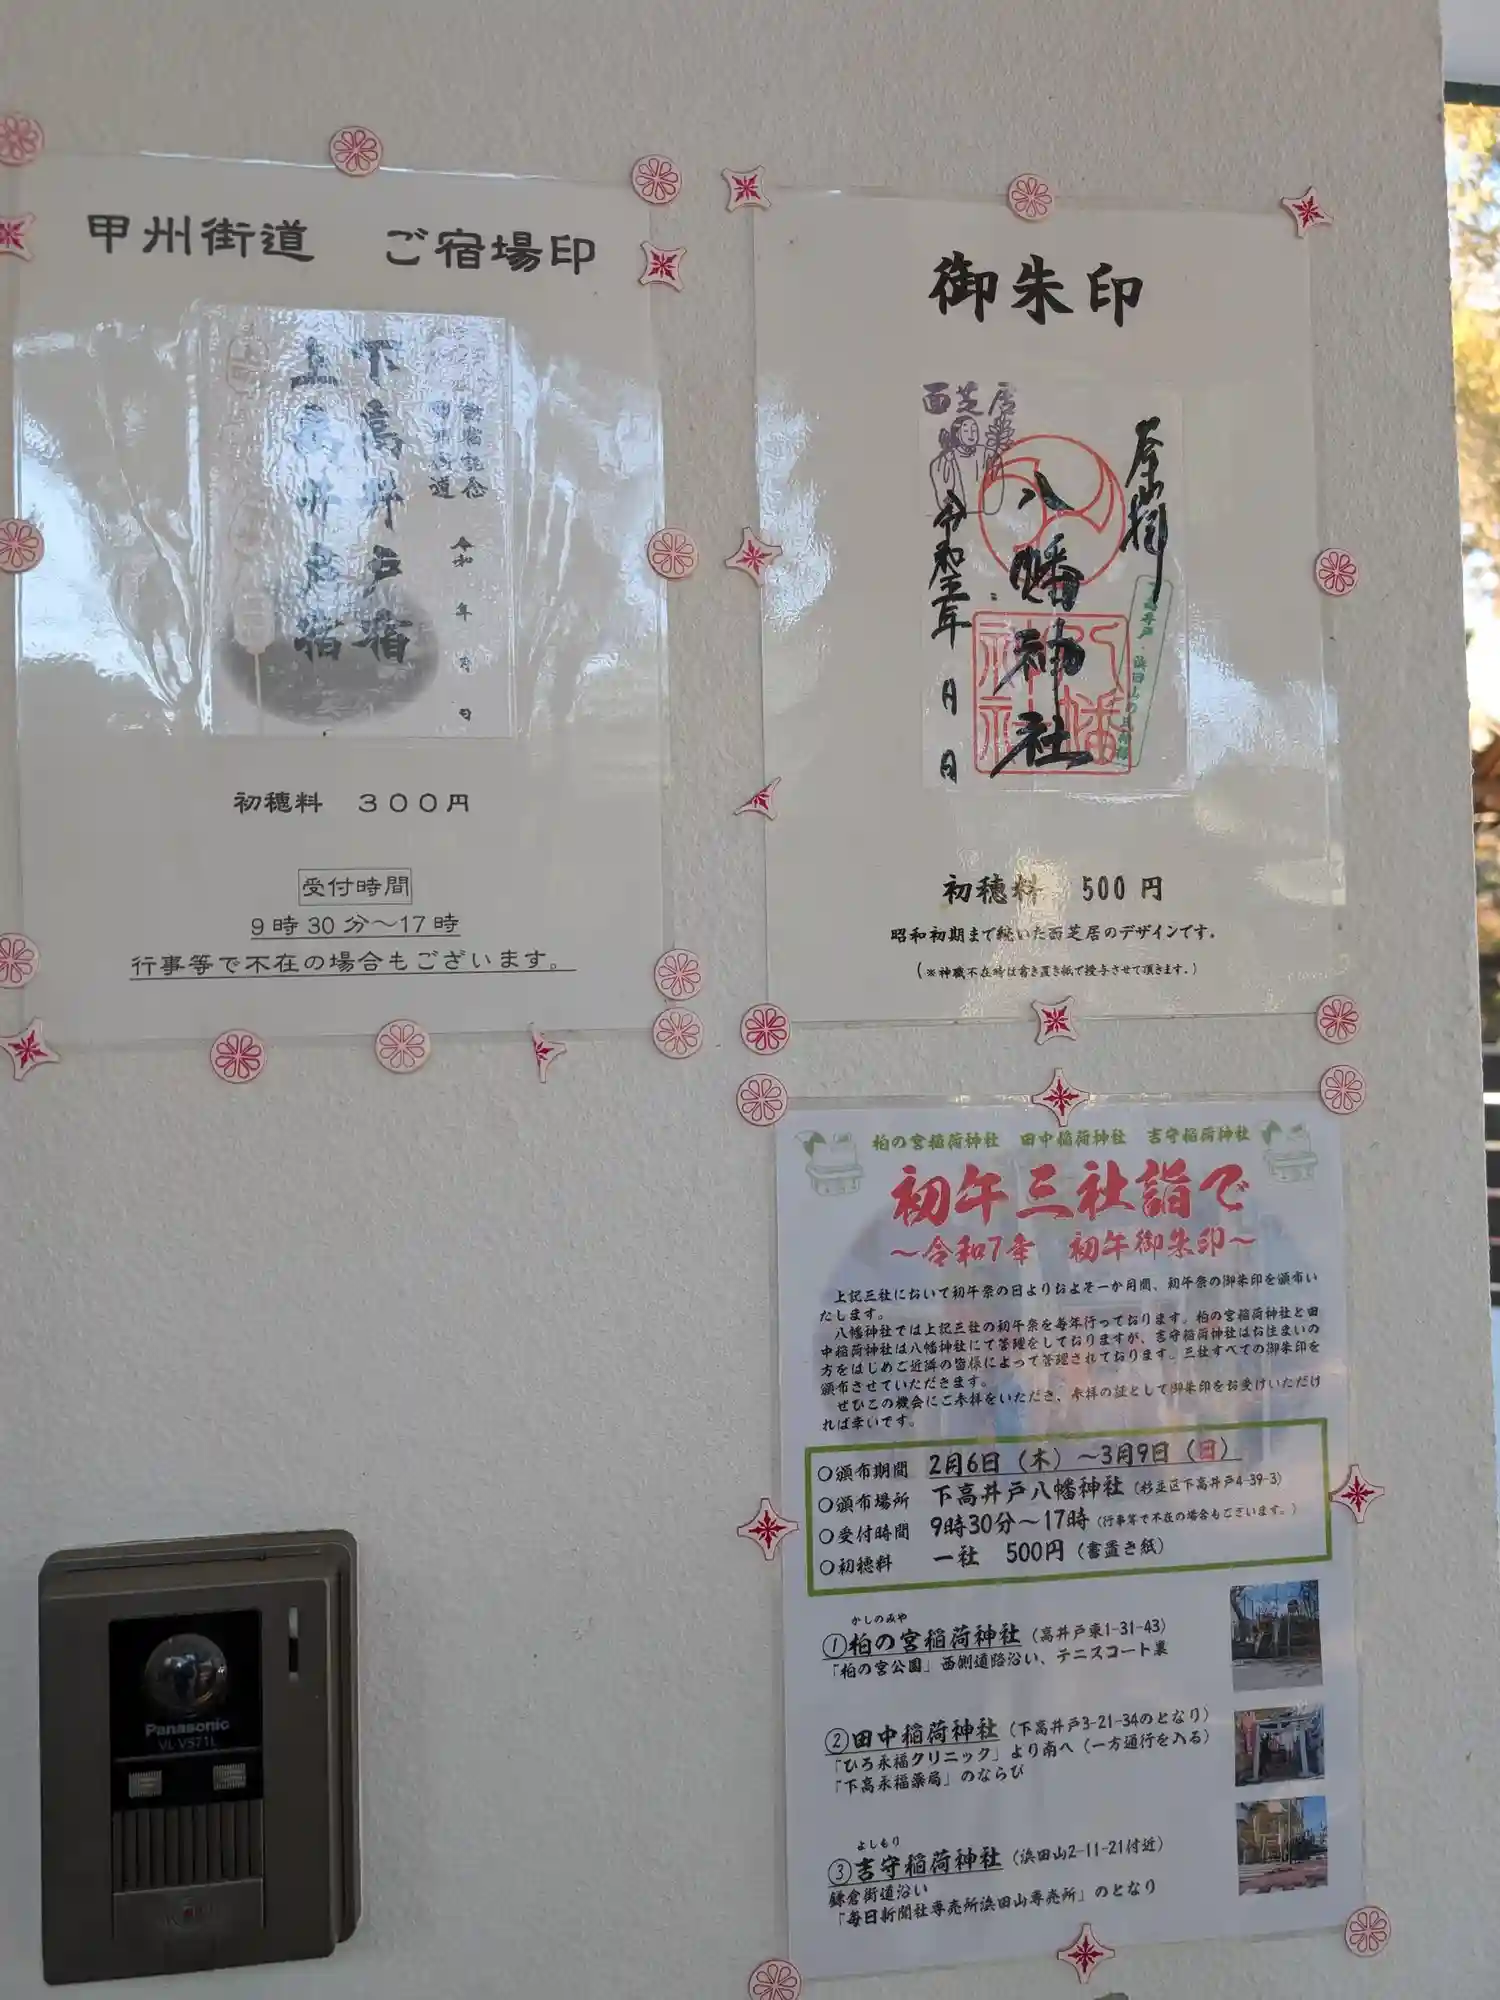 甲州街道　ご宿場印
下高井戸宿
上高井戸宿
甲州街道
令和　年　月　日
初穂料　３００円
受付時間
9時30分～17時
行事等で不在の場合もございます。
御朱印
面芝居
八幡神社
令和　年　月　日
初穂料　500円
昭和初期まで続いた面芝居のデザインです。
（※神職不在時は書き置き紙で授与させて頂きます。）
柏の宮稲荷神社　田中稲荷神社　吉守稲荷神社
初午三社詣で
～令和7年　初午御朱印～
上記三社において初午祭の日よりおよそ一か月間、初午祭の御朱印を頒布い
たします。
八幡神社では上記三社の初午祭を毎年行っております。柏の宮稲荷神社と田
中稲荷神社は八幡神社にて管理をしておりますが、吉守稲荷神社はお住まいの
方をはじめご近隣の皆様によって管理されております。三社すべての御朱印を
頒布させていただきます。
ぜひこの機会にご参拝をいただき、参拝の証として御朱印をお受けいただけ
れば幸いです。
○頒布期間　2月6日（木）～3月9日（日）
○頒布場所　下高井戸八幡神社（杉並区下高井戸4-39-3）
○受付時間　9時30分～17時（行事等で不在の場合もございます。）
○初穂料　一社　500円（書置き紙）
かしのみや
①柏の宮稲荷神社（高井戸東1-31-43）
「柏の宮公園」西側道路沿い、テニスコート裏
②田中稲荷神社（下高井戸3-21-34のとなり）
「ひろ永福クリニック」より南へ（一方通行を入る）
「下高永福薬局」のならび
よしもり
③吉守稲荷神社（浜田山2-11-21付近）
鎌倉街道沿い
「毎日新聞社専売所浜田山専売所」のとなり
Panasonic
VL-V571L